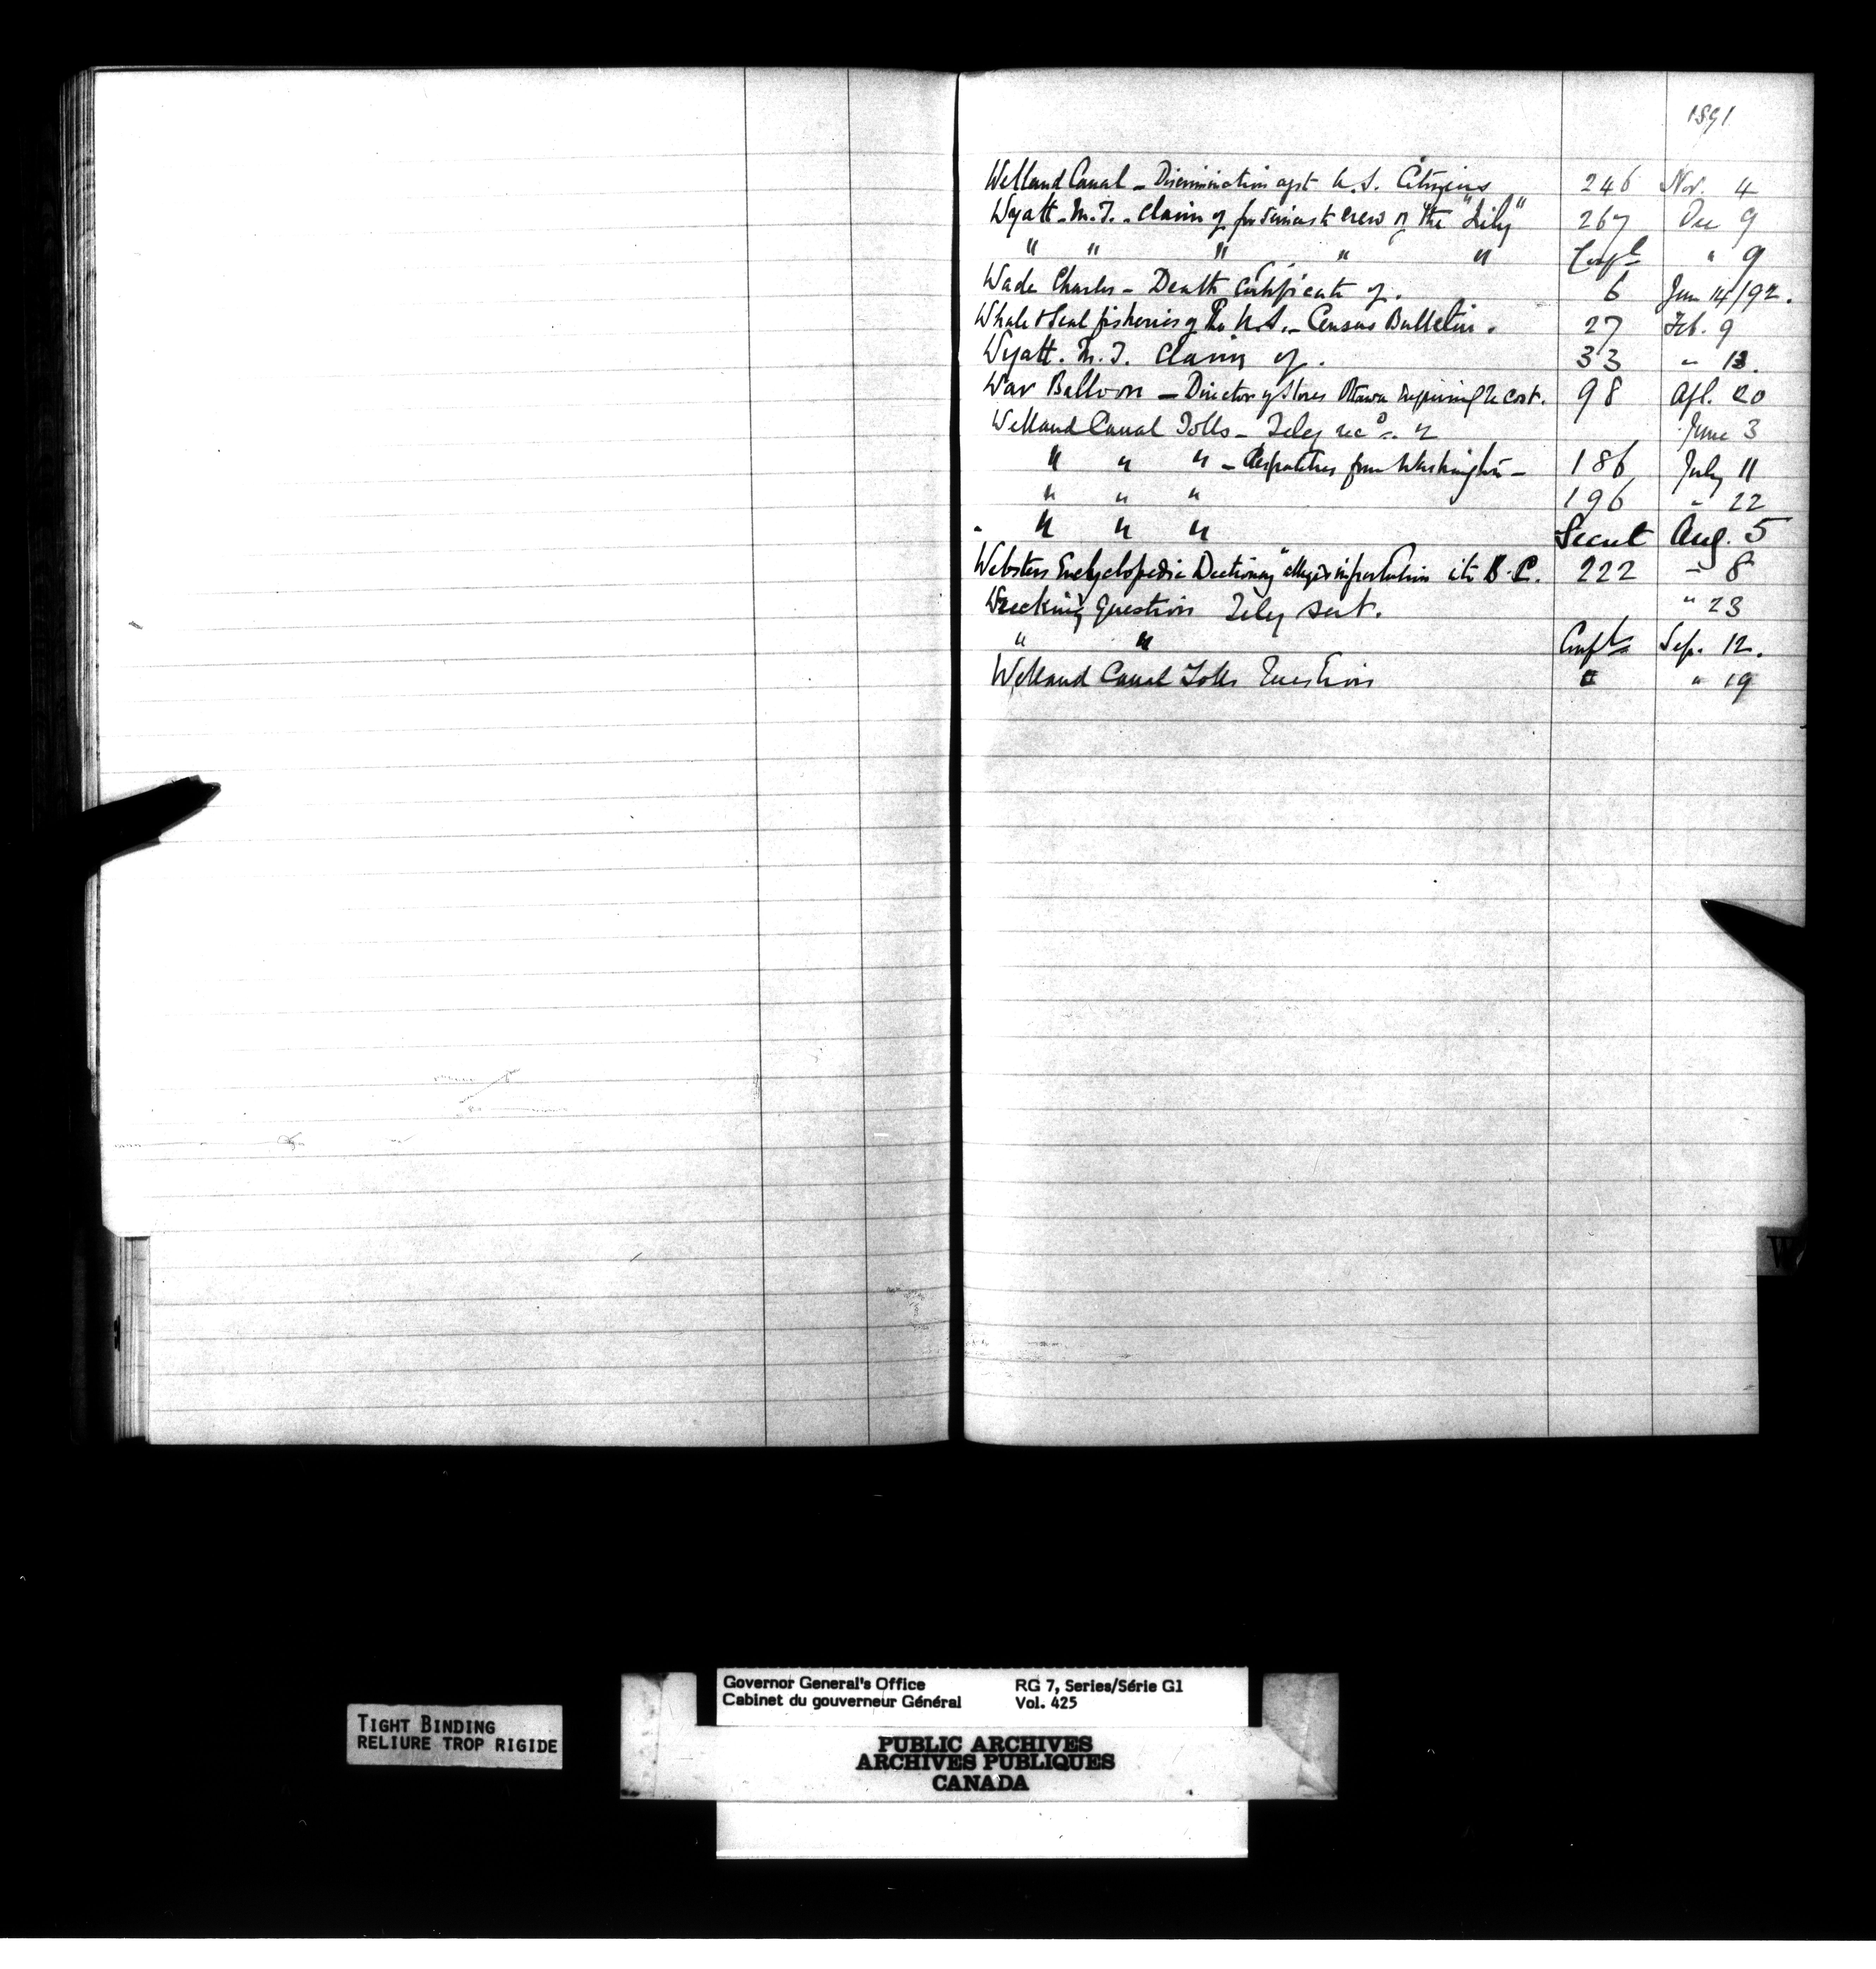 1891
Welland Canal - Discrimination agst U.S. Citizens 246 Nov. 4
Wyatt - M.T. - Claim of for services to crew of the "Lily" 267 Dec 9
" " " " " Confl " 9
Wade Charles - Death Certificate of. 6 Jan 14/92.
Whale & Seal fisheries of the U.S. - Census Bulletin. 27 Feb. 9
Wyatt. M.T. Claim of. 33 " 13.
War Balloon - Director of Stores Ottawa inquiring re cost. 98 Apl. 20
Welland Canal Tolls - Teleg recd June 3
" " " - Despatches from Washington - 186 July 11
" " " 196 " 22
" " " Secret Aug. 5
Websters Encyclopedic Dictionary" alleged importation into B.C. 222 " 8
Wrecking Question Teleg sent. " 23
" " Confl Sep. 12.
Welland Canal Tolls Question " " 19
W
Governor General's Office RG 7, Series/Série G1
Cabinet du gouverneur Général Vol. 425
TIGHT BINDING
RELIURE TROP RIGIDE
PUBLIC ARCHIVES
ARCHIVES PUBLIQUES
CANADA